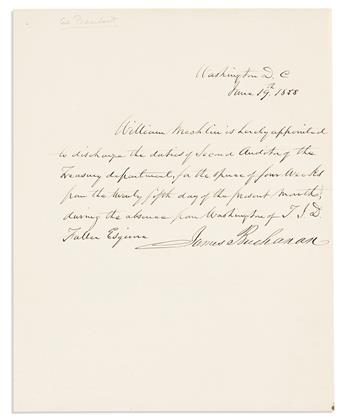 Washington D. C
June 19th 1858
William Mechlin is hereby appointed
to discharge the duties of Second Auditor of the
Treasury department, for the space of four weeks
from the twenty fifth day of the present month,
during the absence from Washington of T. J. D.
Fuller Esquire
James Buchanan